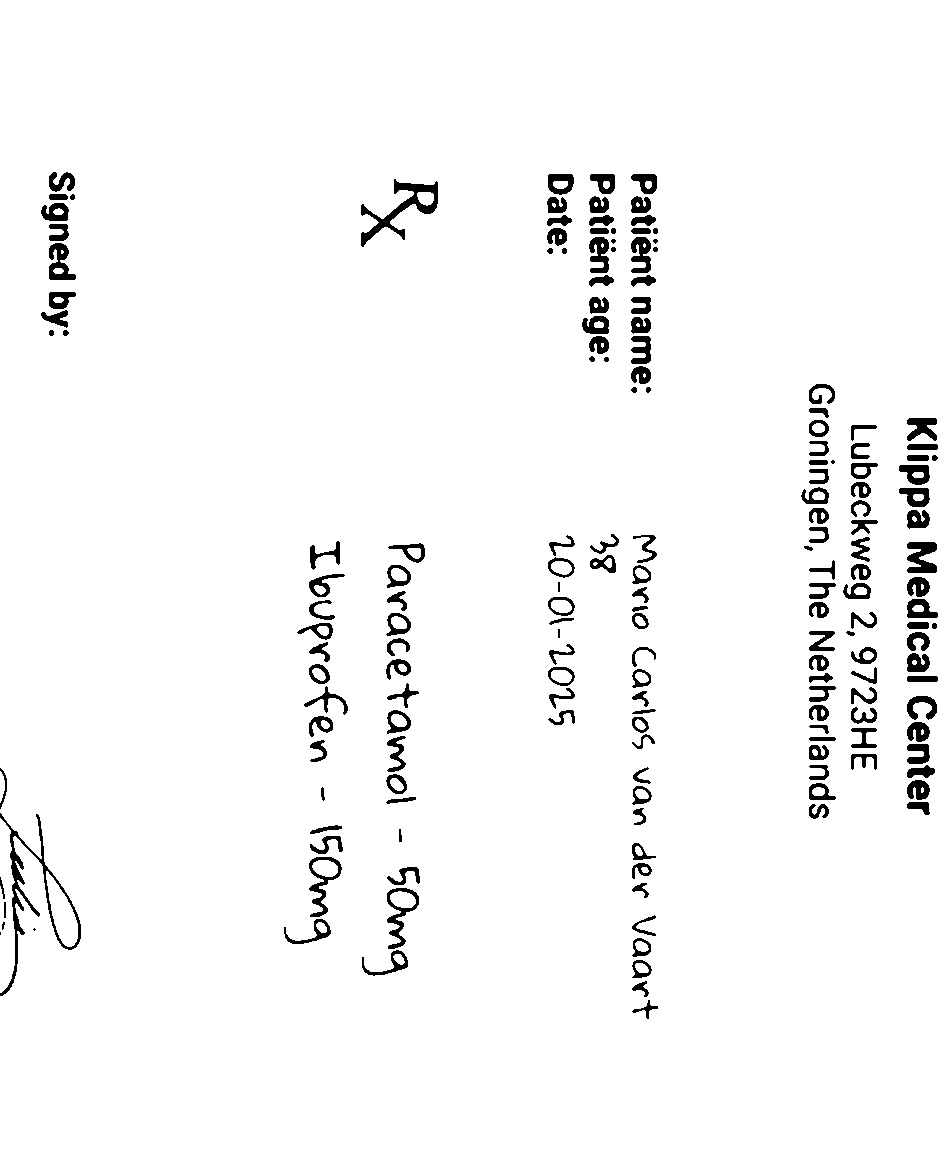 Klippa Medical Center
Lubeckweg 2, 9723HE
Groningen, The Netherlands
Patiënt name: Mario Carlos van der Vaart
Patiënt age: 38
Date: 20-01-2025
Rx
Paracetamol - 50mg
Ibuprofen - 150mg
Signed by: